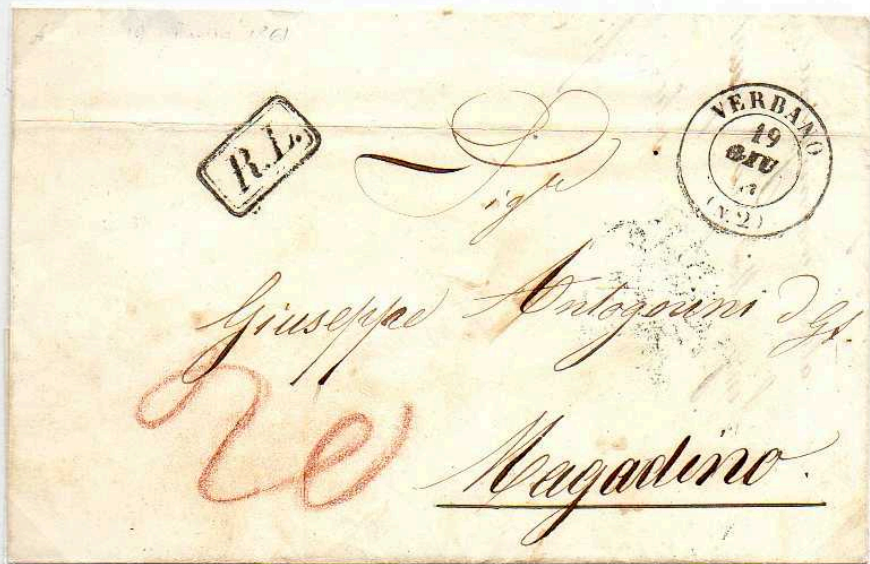 1861
R.L.
VERBANO
19
GIU
(N.2)
Sigr
Giuseppe Antognini
20
Magadino.